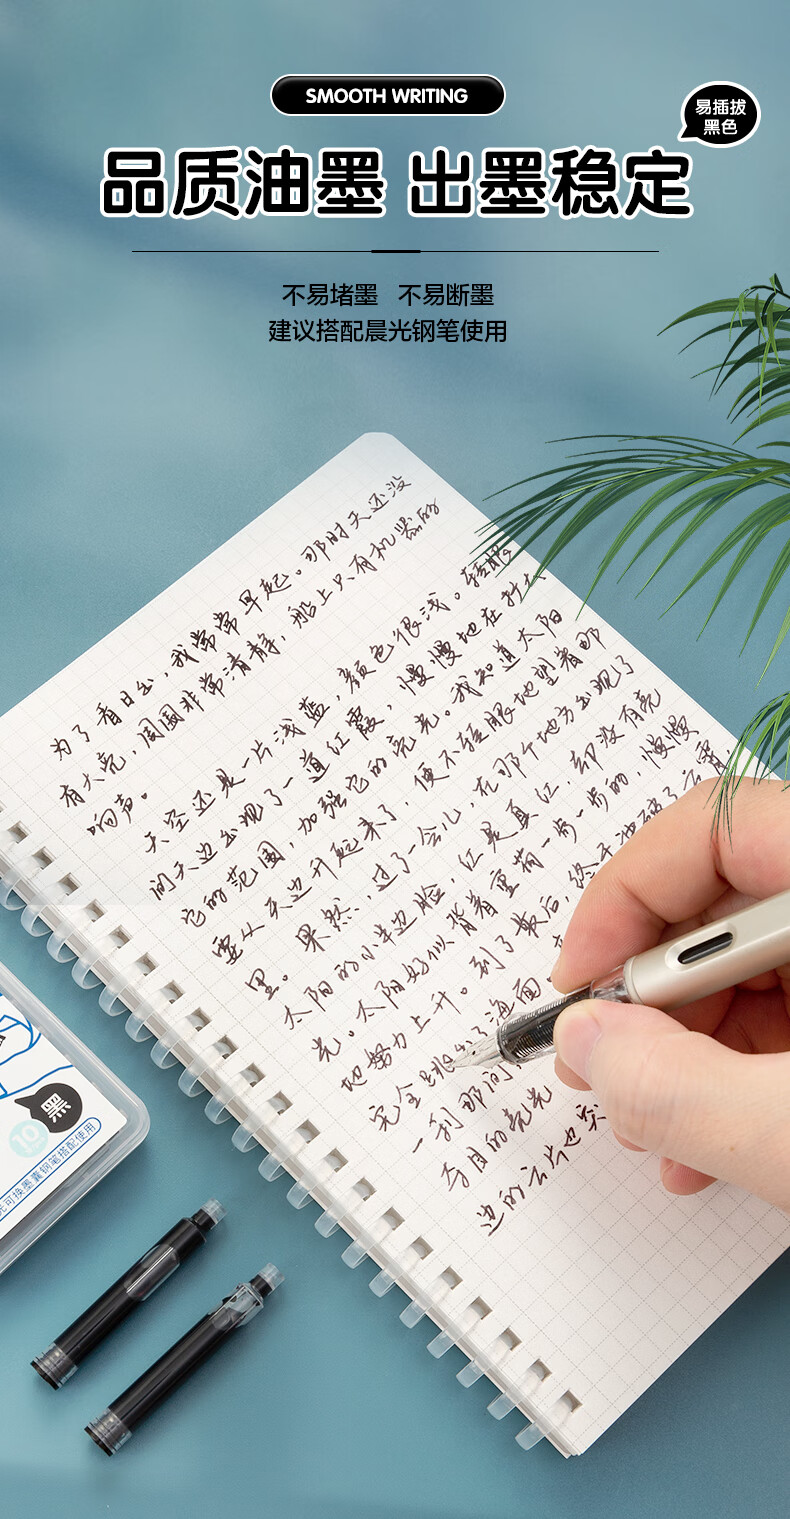 SMOOTH WRITING
易插拔
黑色
品质油墨 出墨稳定
不易堵墨 不易断墨
建议搭配晨光钢笔使用
为了看日出，我常常早起。那时天还没
有大亮，周围非常清静，船上只有机器的
响声。
天空还是一片浅蓝，颜色很浅。转眼
间天边出现了一道红霞，慢慢地在扩大
它的范围，加强它的亮光。我知道太阳
要从天边升起来了，便不转眼地望着那
里。果然，过了一会儿，在那个地方出现了
太阳的小半边脸，红是真红，却没有亮
光。太阳好似背着重荷一步一步的，慢慢
地努力上升。到了最后，终于冲破了云霞，
完全跳出了海面
一刹那间
夺目的亮光
边的云片也突
黑
10
可换墨囊钢笔搭配使用